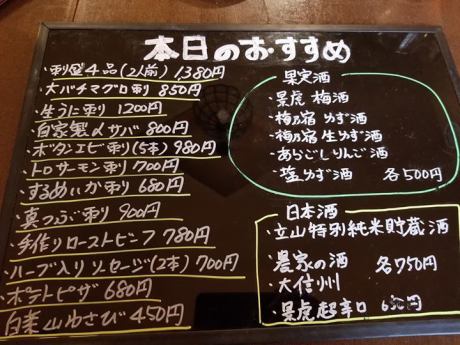 本日のおすすめ
・刺盛4品(2人前) 1380円
・大バチマグロ刺 850円
・生うに刺 1200円
・自家製〆サバ 800円
・ボタンエビ刺(5本) 980円
・トロサーモン刺 700円
・するめいか刺 680円
・真つぶ刺 900円
・手作りローストビーフ 780円
・ハーブ入りソーセージ(2本) 700円
・ポテトピザ 680円
・白菜山わさび 450円
果実酒
・景虎 梅酒
・梅乃宿 ゆず酒
・梅乃宿 生ゆず酒
・あらごしりんご酒
・塩ゆず酒 各500円
日本酒
・立山特別純米貯蔵酒
・農家の酒 各750円
・大信州
・景虎超辛口 650円